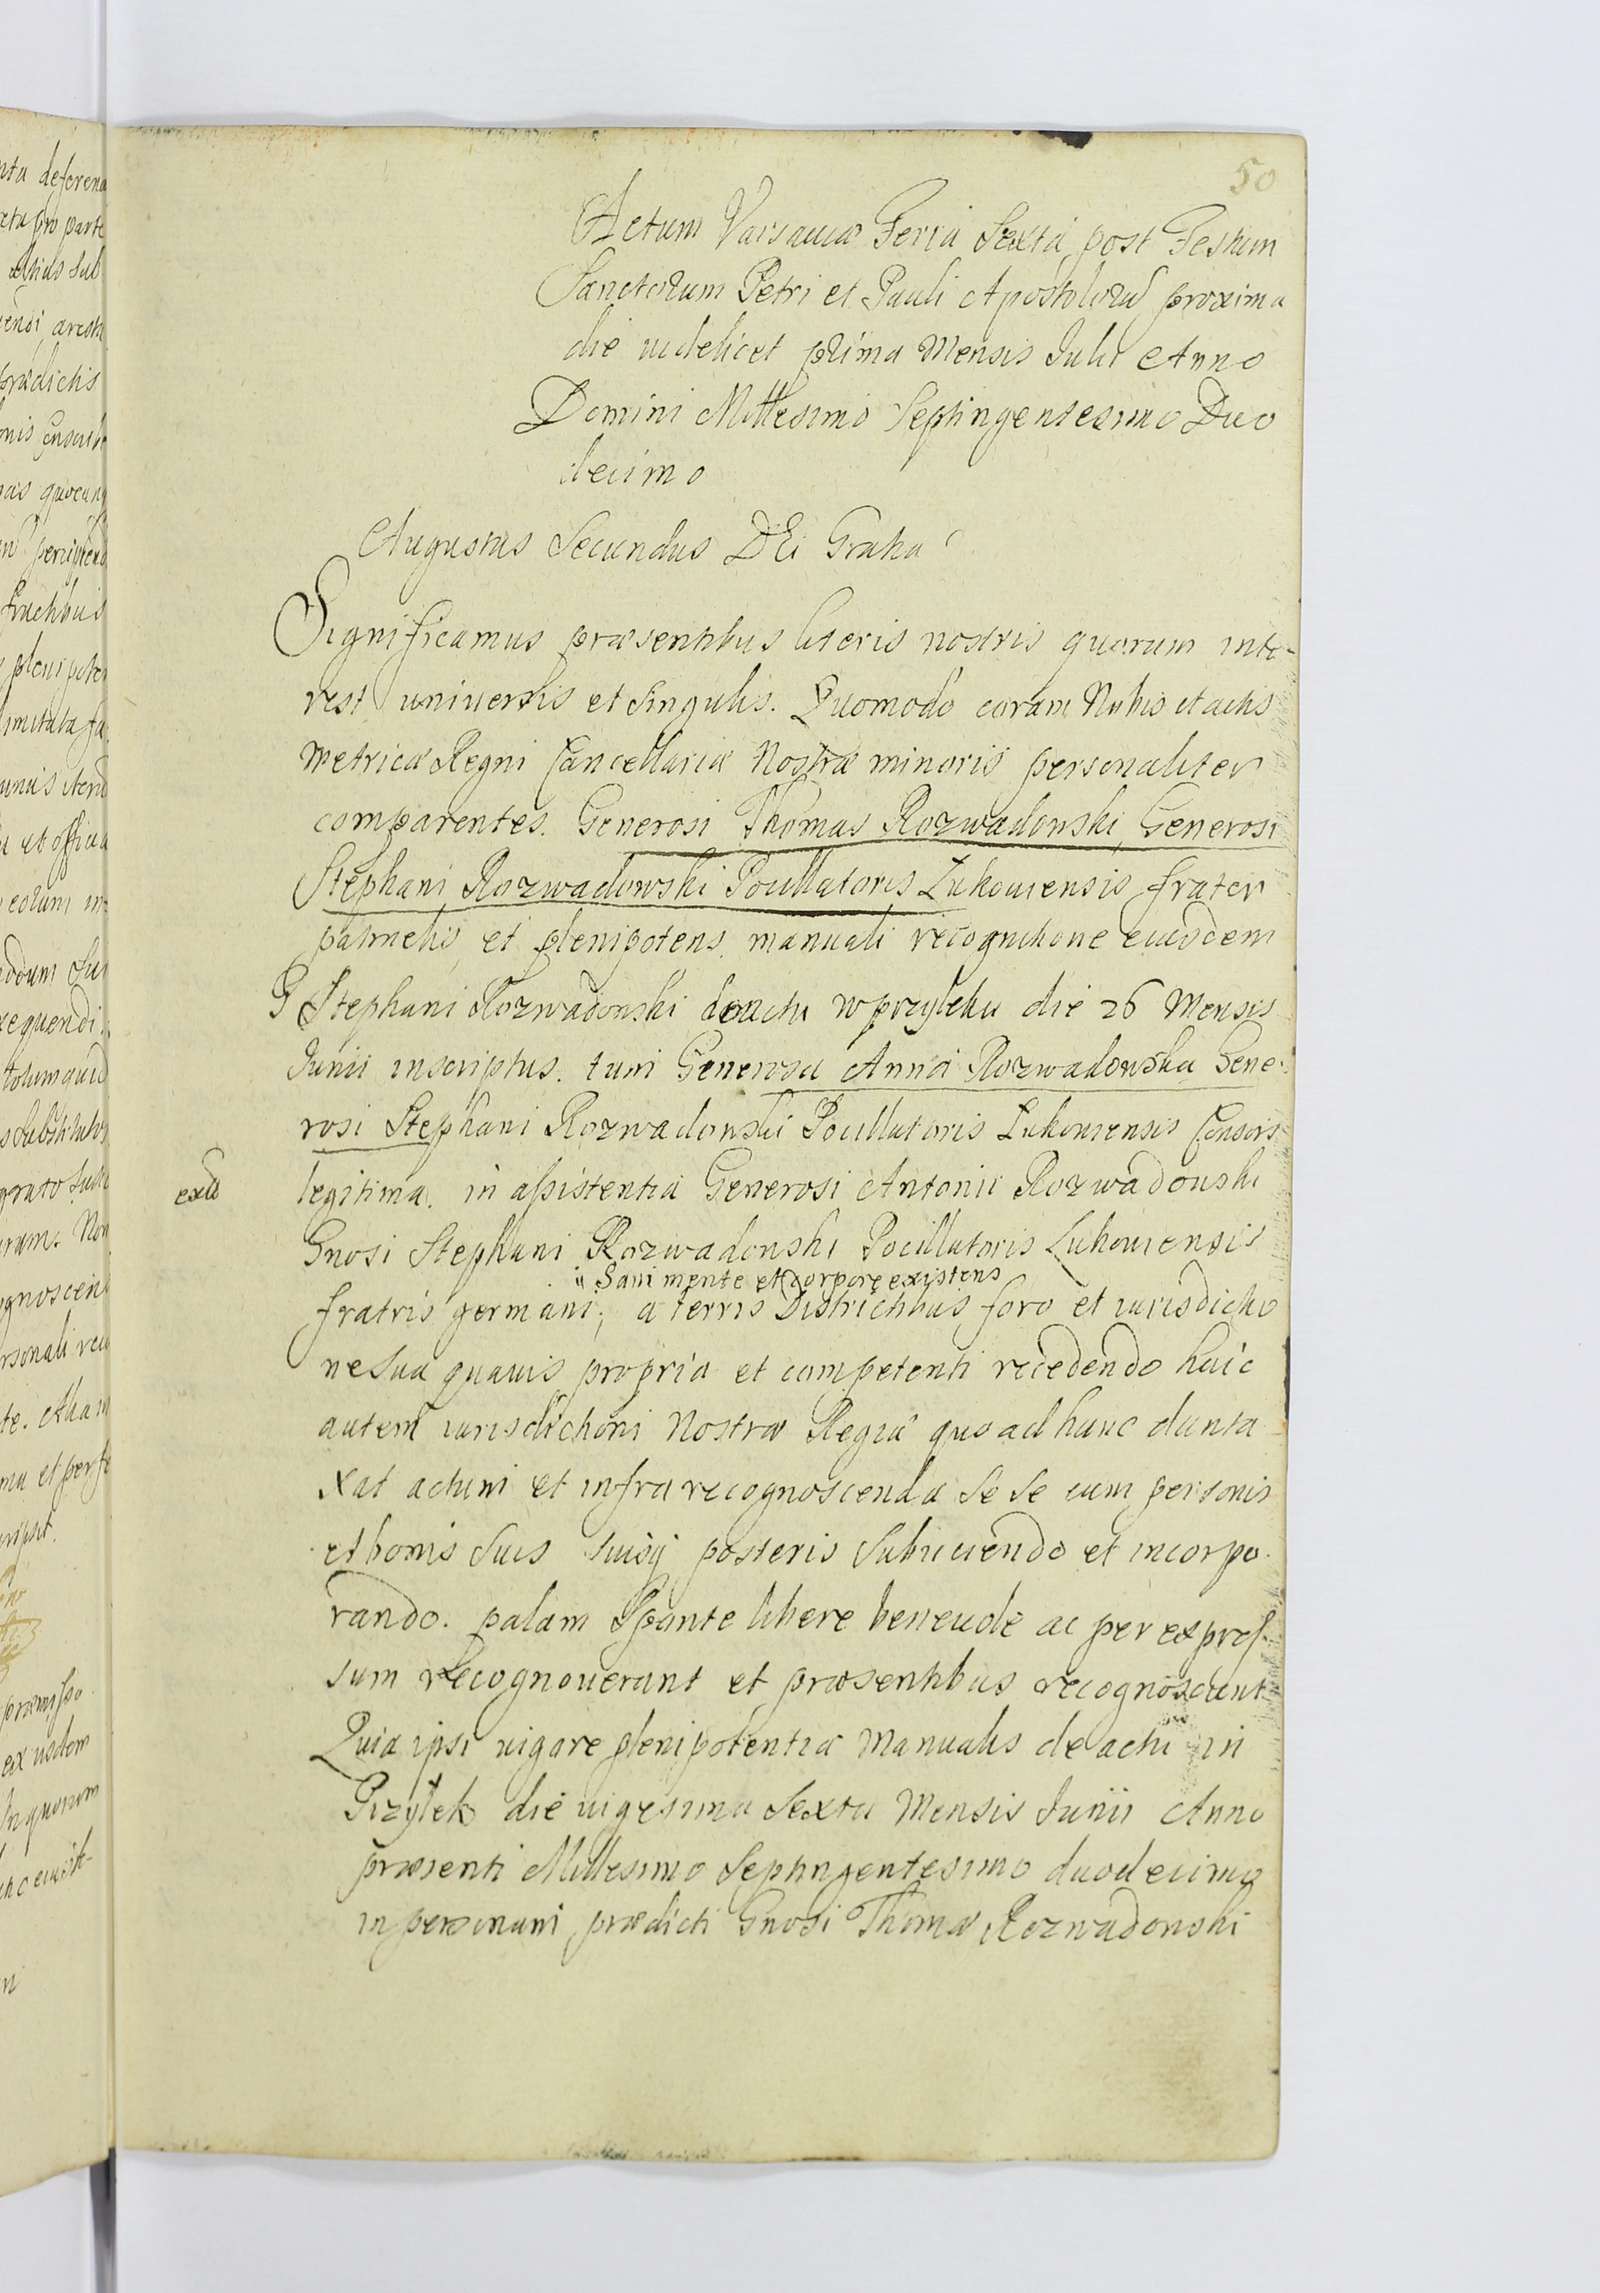 50
Actum Varsaviæ Feria Sexta post Festum
Sanctorum Petri et Pauli Apostolorũ proxima
die videlicet prima Mensis Julii Anno
Domini Millesimo Septingentesimo Duo
decimo
Augustus Secundus DEi Gratia
Significamus præsentibus literis nostris quorum inte-
rest universis et singulis. Quomodo coram Nobis et actis
Metricæ Regni Cancellariæ Nostræ minoris personaliter
comparentes. Generosi Thomas Rozwadowski, Generosi
Stephani Rozwadowski Pocillatoris Lukoviensis frater
patruelis, et plenipotens manuali recognitione eiusdem
G Stephani Rozwadowski de actu w przyłęku die 26 Mensis
Junii inscriptus. tum Generosa Anna Rozwadowska Gene-
rosi Stephani Rozwadowski Pocillatoris Lukoviensis Consors
legitima. in assistentia Generosi Antonii Rozwadowski
Gnosi Stephani Rozwadowski Pocillatoris Lukoviensis
Sani mente et corpore existens
fratris germani; a terris Districtibus foro et iurisdictio
ne sua quavis propria et competenti recedendo huic
autem iurisdictioni Nostræ Regiæ quo ad hunc dunta
xat actum et infra recognoscenda se se cum personis
et bonis suis suisq posteris subiiciendo et incorpo-
rando. palam sponte libere benevole ac per expres-
sum recognoverunt et præsentibus recognoscunt
Quia ipsi vigore plenipotentiæ Manualis de actu in
Przyłęk die vigesima Sexta Mensis Junii Anno
præsenti Millesimo Septingentesimo duodecimo
in personam prædicti Gnosi Thomæ Rozwadowski